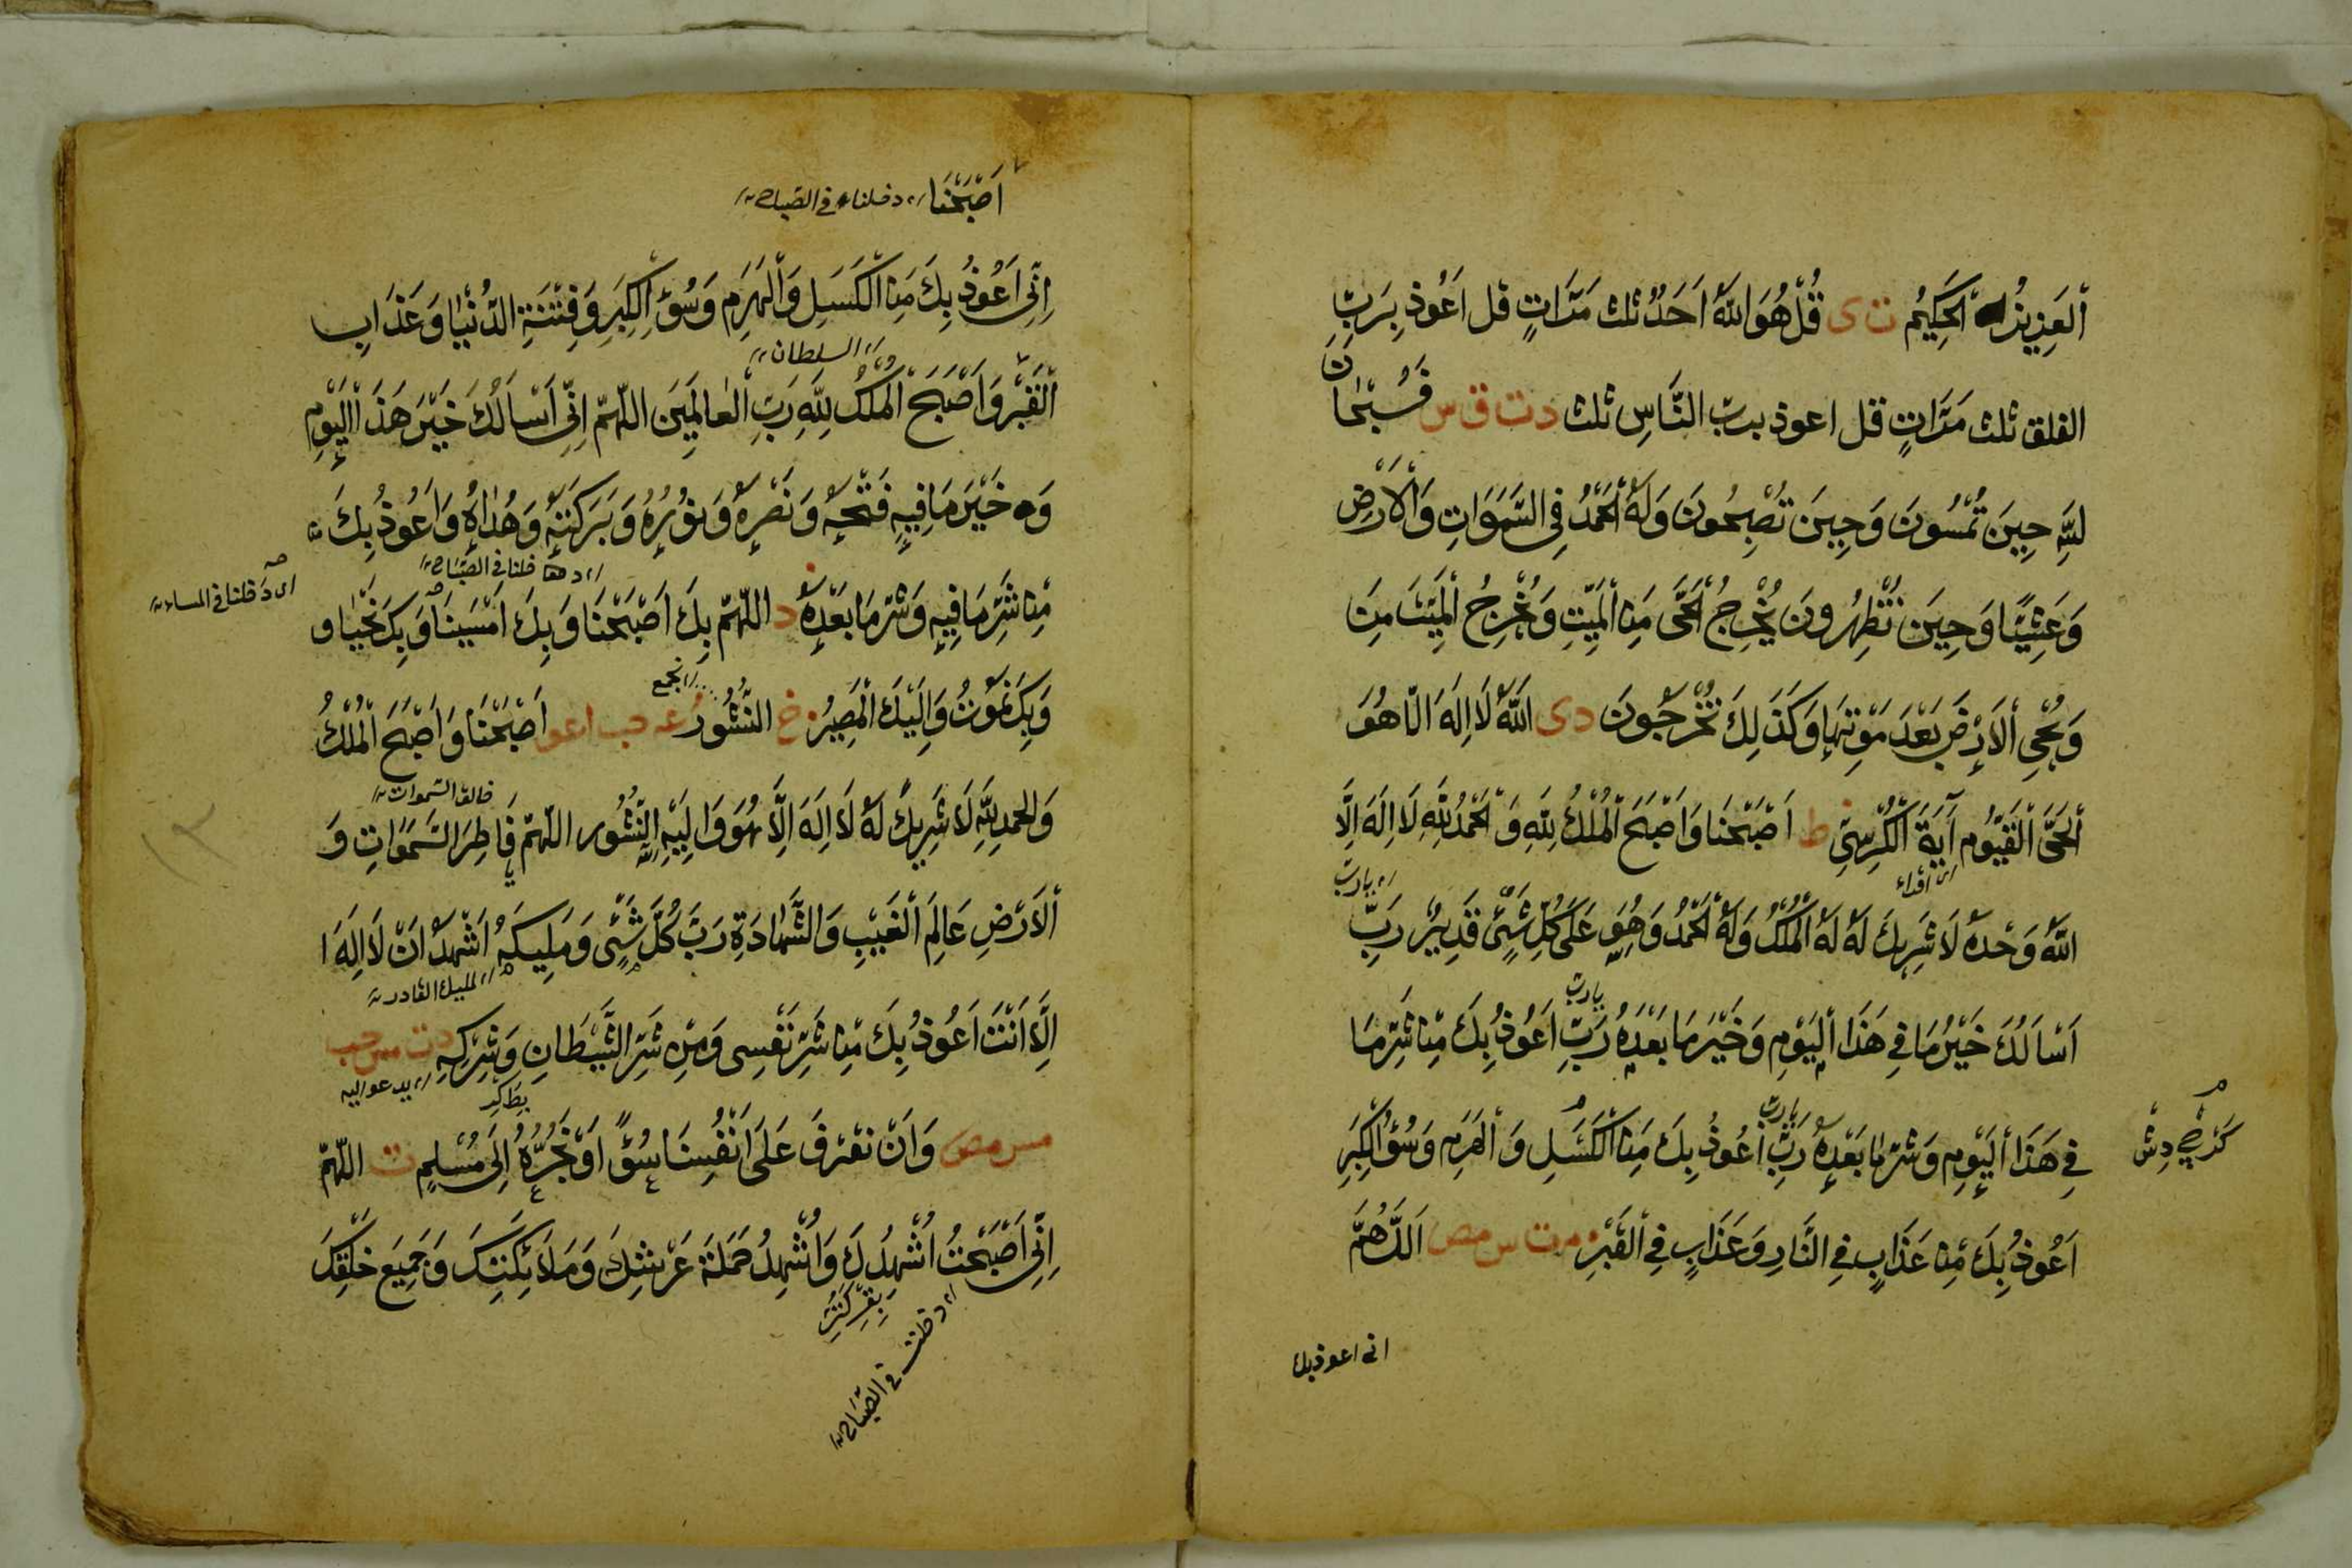 اَلعَزِيزُ الْحَكِيْمُ ت ى قُلْ هُوَ اللّٰهُ اَحَدٌ ثلث مَرَّاتٍ قل اَعُوذ بِرَبِّ
الفلق ثلث مَرَّاتٍ قل اعوذ برب النَّاسِ ثلث د ت ق س فَسُبْحَانَ
لِلّٰهِ حِينَ تُمْسُونَ وَحِينَ تُصْبِحُونَ وَلَهُ الْحَمْدُ فِى السَّمٰوَاتِ وَالْاَرْضِ
وَعَشِيًّا وَحِينَ تُظْهِرُونَ يُخْرِجُ الْحَىَّ مِنَ الْمَيِّتِ وَيُخْرِجُ الْمَيِّتَ مِنَ
وَيُحْىِ الْاَرْضَ بَعْدَ مَوْتِهَا وَكَذٰلِكَ تُخْرَجُونَ د ى اَللّٰهُ لَا اِلٰهَ اِلَّا هُوَ
اَلْحَىُّ الْقَيُّوم آيَةَ الْكُرْسِىِّ ط اَصْبَحْنَا وَاَصْبَحَ الْمُلْكُ لِلّٰهِ وَالْحَمْدُ لِلّٰهِ لَا اِلٰهَ اِلَّا
اى اقراء
اى يارب
اللّٰهُ وَحْدَهُ لَا شَرِيكَ لَهُ لَهُ الْمُلْكُ وَلَهُ الْحَمْدُ وَهُوَ عَلَى كُلِّ شَىْءٍ قَدِيرٌ رَبِّ
يارب
اَسْاَلُكَ خَيْرَ مَا فِى هَذَا الْيَوْمِ وَخَيْرَ مَا بَعْدَهُ رَبِّ اَعُوذُ بِكَ مِنْ شَرِّ مَا
يارب
فِى هَذَا الْيَوْمِ وَشَرِّ مَا بَعْدَهُ رَبِّ اَعُوذُ بِكَ مِنَ الْكَسَلِ وَالْهَرَمِ وَسُوْءِ الْكِبَرِ
اَعُوذُ بِكَ مِنْ عَذَابٍ فِى النَّارِ وَعَذَابٍ فِى الْقَبْرِ م ت س مص اَللّٰهُمَّ
انى اعوذ بك
اَصْبَحْنَا اى دخلنا فى الصّباح
اِنِّى اَعُوذُ بِكَ مِنَ الْكَسَلِ وَالْهَرَمِ وَسُوْءِ الْكِبَرِ وَفِتْنَةِ الدُّنْيَا وَعَذَابِ
اى السلطان
اَلْقَبْرِ وَاَصْبَحَ الْمُلْكُ لِلّٰهِ رَبِّ الْعَالَمِينَ اللّٰهُمَّ اِنِّى اَسْاَلُكَ خَيْرَ هَذَا الْيَوْمِ
وَ خَيْرَ مَا فِيهِ فَتْحَهُ وَنَصْرَهُ وَنُوْرَهُ وَبَرَكَتَهُ وَهُدَاهُ وَاَعُوذُ بِكَ
اى دخلنا فى الصّباح
اى دخلنا فى المساء
مِنْ شَرِّ مَا فِيهِ وَشَرِّ مَا بَعْدَهُ د اللّٰهُمَّ بِكَ اَصْبَحْنَا وَبِكَ اَمْسَيْنَا وَبِكَ نَحْيَا و
اى الجمع
وَبِكَ نَمُوتُ وَاِلَيْكَ الْمَصِيرُ خ النُّشُورُ عه حب ا عو اَصْبَحْنَا وَاَصْبَحَ الْمُلْكُ
خالق السّموات
وَالحمد لِلّٰهِ لَا شَرِيكَ لَهُ لَا اِلٰهَ اِلَّا هُوَ وَاِلَيْهِ النُّشُور اللّٰهُمَّ فَاطِرَ السَّمٰوَاتِ وَ
اَلْاَرْضِ عَالِمَ الْغَيْبِ وَالشَّهَادَةِ رَبَّ كُلِّ شَىْءٍ وَمَلِيكَهُ اَشْهَدُ اَنْ لَا اِلٰهَ ا
اى المليك القادر
اِلَّا اَنْتَ اَعُوذُ بِكَ مِنْ شَرِّ نَفْسِى وَمِنْ شَرِّ الشَّيْطَانِ وَشِرْكِهِ د ت س حب
اى يدعو اليه
مس مص وَاَنْ نَقْتَرِفَ عَلَى اَنْفُسِنَا سُوْءً اَوْ نَجُرَّهُ اِلَى مُسْلِمٍ ت اللّٰهُمَّ
اِنِّى اَصْبَحْتُ اُشْهِدُكَ وَاُشْهِدُ حَمَلَةَ عَرْشِكَ وَمَلَائِكَتِكَ وَجَمِيعَ خَلْقِكَ
اى دخلت فى الصّباح